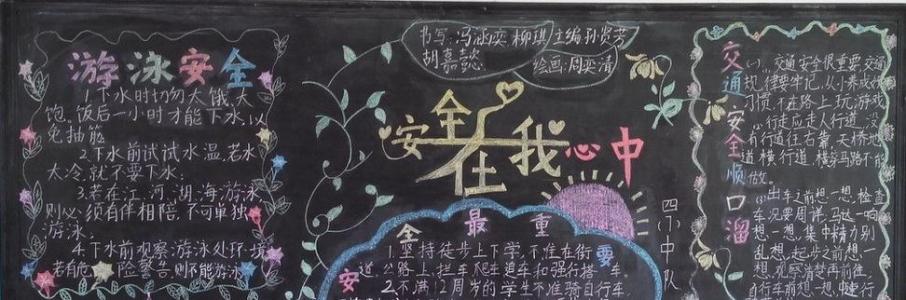 游泳安全
1.下水时切勿太饿、太
饱。饭后一小时才能下水,以
免抽筋
2.下水前试试水温,若水
太冷,就不要下水;
3.若在江、河、湖、海游泳,
则必须有伴相陪,不可单独
游泳;
4.下水前观察游泳处环境,
若有危险警告,则不能游泳
书写:冯涵奕 柳琪 主编
胡嘉懿 绘画:周奕清
安全在我心中
四小中队
安全最重要
1.坚持徒步上下学,不准在街
道、公路上拦车、爬车、追车和强行搭车。
2.不满12周岁的学生不准骑自行车,
交通安全顺口溜
(一)、交通安全很重要,交通
规律要牢记,从小养成好
习惯,不在路上玩游戏
行走应走人行道,没
有行道往右靠,天桥地
道横行道,横穿马路不能
做。
出车之前想一想,检查
车况要周详,马达一响
想一想,集中精力别
乱想,起步之前想一
想,观察清楚再前往,
自行车前想一想,中速行